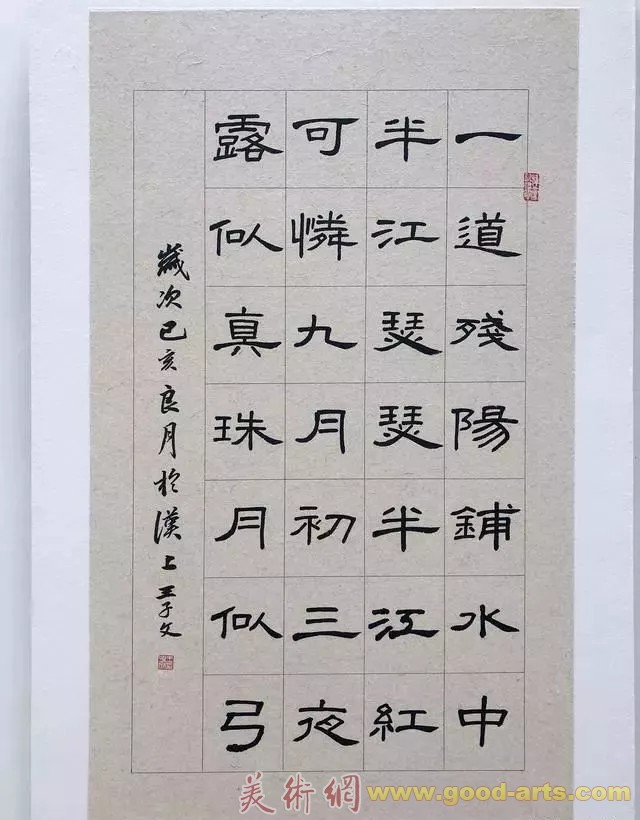 一道殘陽鋪水中
半江瑟瑟半江紅
可憐九月初三夜
露似真珠月似弓
歲次己亥良月於漢上王子文
美術網 www.good-arts.com